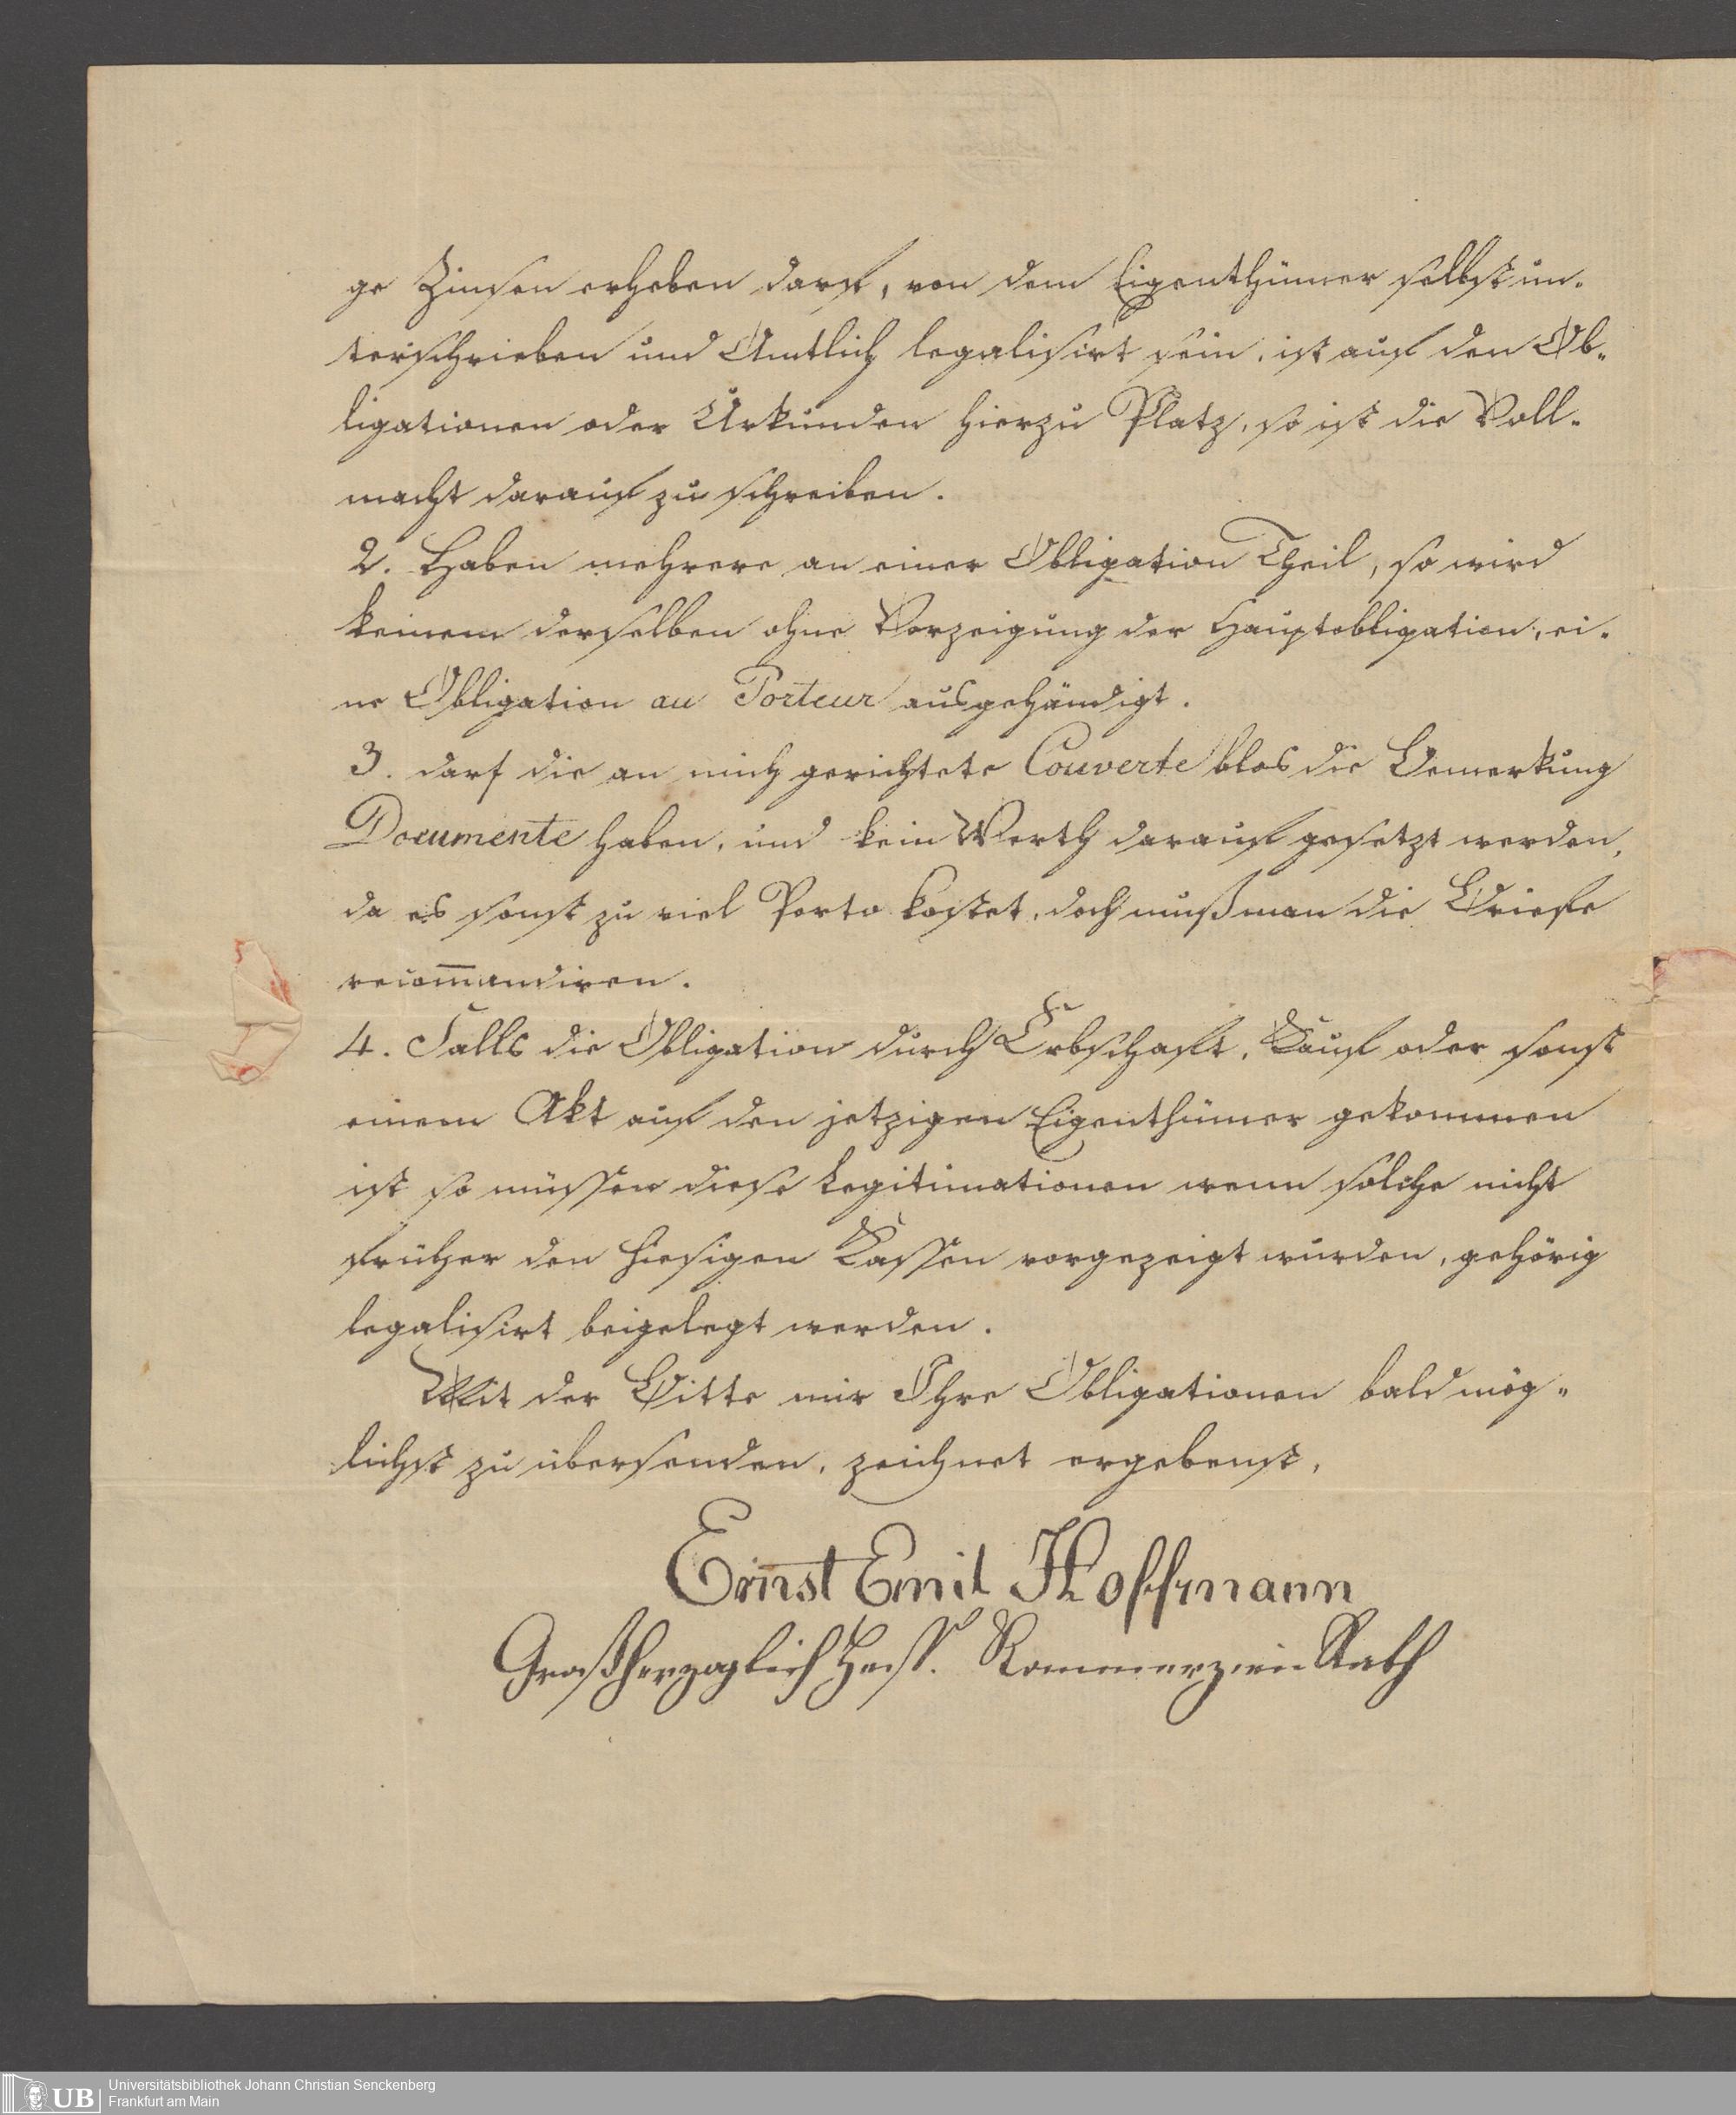 ge Zinsen erheben darf, von dem Eigenthümer selbst un-
terschrieben und Amtlich legalisirt sein, ist auf den Ob-
ligationen oder Urkunden hierzu Platz, so ist die Voll-
macht darauf zu schreiben.
2. Haben mehrere an einer Obligation Theil, so wird
keinem derselben ohne Vorzeigung der Hauptobligation, ei-
ne Obligation au Porteur ausgehändigt.
3. darf die an mich gerichtete Couverte blos die Bemerkung
Documente haben, und kein Werth darauf gesetzt werden,
da es sonst zu viel Porto kostet, doch muß man die Briefe
recom̅andiren.
4. Falls die Obligation durch Erbschaft, Kauf oder sonst
einem Akt auf den jetzigen Eigenthümer gekommen
ist so müssen diese Legitimationen wenn solche nicht
früher den hiesigen Kassen vorgezeigt wurden, gehörig
legalisirt beigelegt werden.
Mit der Bitte mir Ihre Obligationen bald mög-
lichst zu übersenden, zeichnet ergebenst,
Ernst Emil Hoffmann
Großherzoglich Hess. Kommerzien Rath
UB
Universitätsbibliothek Johann Christian Senckenberg
Frankfurt am Main